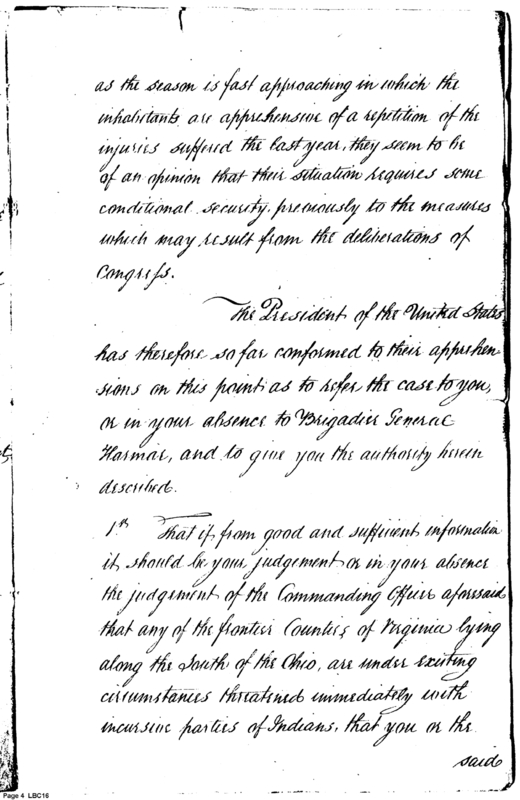 as the season is fast approaching in which the
inhabitants are apprehensive of a repetition of the
injuries suffered the last year, they seem to be
of an opinion that their situation requires some
conditional security, previously to the measures
which may result from the deliberations of
Congress.
The President of the United States
has therefore so far conformed to their apprehen
sions on this point as to refer the case to you,
or in your absence to Brigadier General
Harmar, and to give you the authority herein
described.
1st That if from good and sufficient information
it should be your judgement or in your absence
the judgement of the Commanding Officer aforesaid
that any of the frontier Counties of Virginia lying
along the South of the Ohio, are under existing
circumstances threatened immediately with
incursive parties of Indians, that you or the
said
Page 4 LBC16